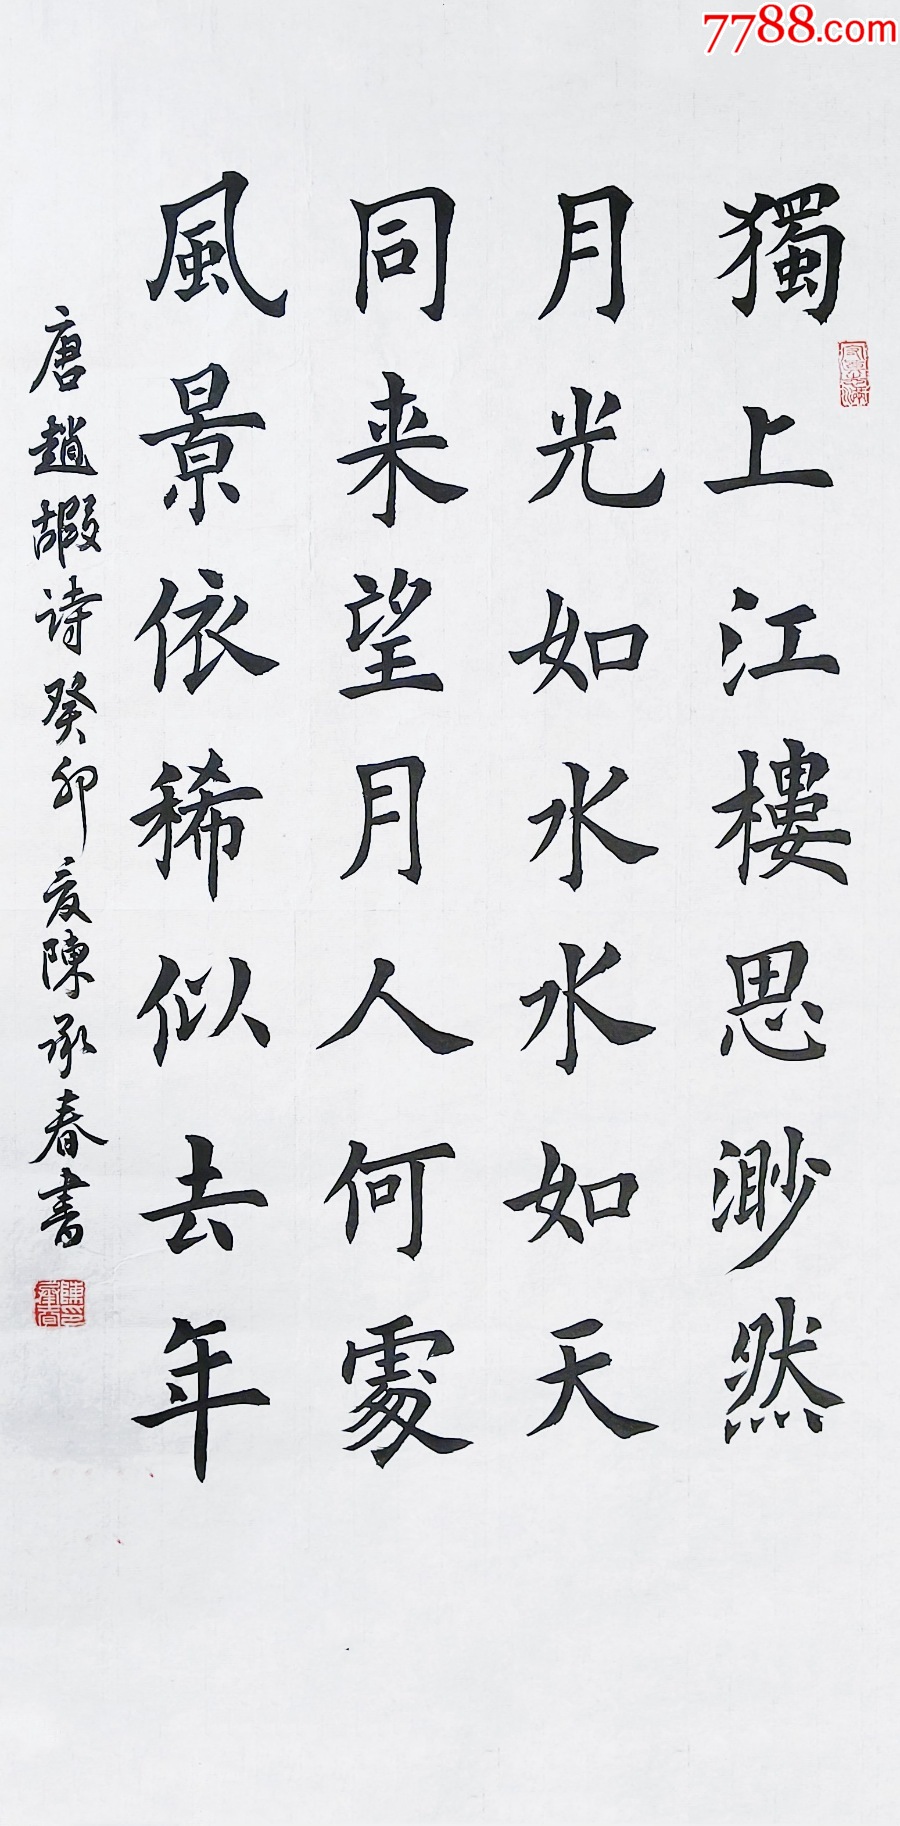 7788.com
獨上江樓思渺然
月光如水水如天
同来望月人何處
風景依稀似去年
唐趙嘏诗癸卯夏陳承春書